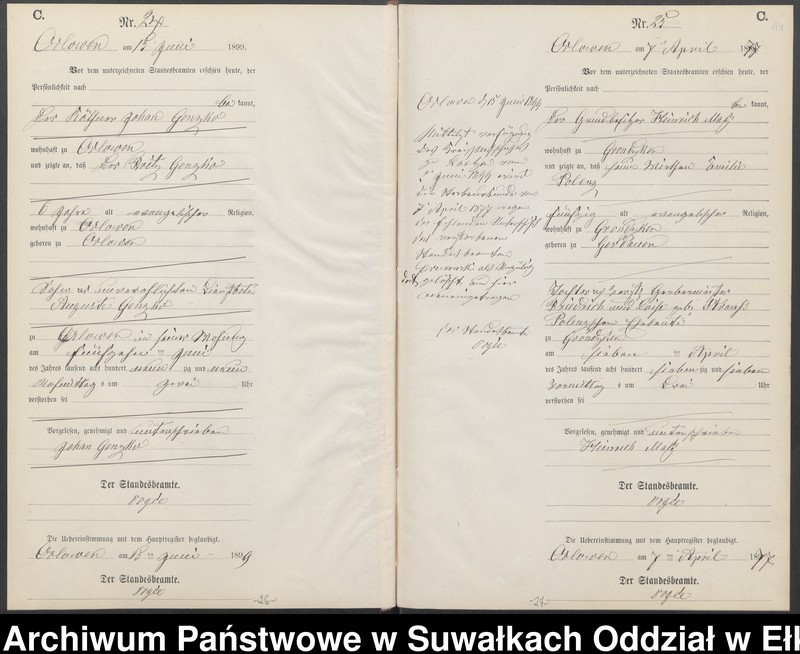 C.
Nr. 24
Orlowen am 15 Juni 1899.
Vor dem unterzeichneten Standesbeamten erschien heute, der
Persönlichkeit nach
be kannt,
Der Käthner Johan Genzko
wohnhaft zu Orlowen
und zeigte an, daß Der Fritz Genzko
6 Jahre alt evangelischer Religion,
wohnhaft zu Orlowen
geboren zu Orlowen
Sohn der unverehlichten
Auguste Genzko
zu Orlowen in seiner Wohnung
am fünfzehn ten Juni
des Jahres tausend acht hundert neun zig und neun
Nachmittag s um zwei Uhr
verstorben sei
Vorgelesen, genehmigt und unterschrieben
Johan Genzko
Der Standesbeamte.
Die Uebereinstimmung mit dem Hauptregister beglaubigt.
Orlowen am 15 ten Juni 1899
Der Standesbeamte.
-26-
Orlowen d 15 Juni 1899
Mittelst Verfügung
des
zu Loetzen vom
Juni 1899 wird
die
7 April 1877 wegen
der fehlenden Unterschrift
des verstorbenen
Standesbeamten
als
gelöscht und hier
Der Standesbeamte
C.
Nr. 25
Orlowen am 7 April 1877
Vor dem unterzeichneten Standesbeamten erschien heute, der
Persönlichkeit nach
be kannt,
Der Grundbesitzer Heinrich Matz
wohnhaft zu Grondzken
und zeigte an, daß seine Wirthin Emilie
Polenz
fünfzig alt evangelischer Religion,
wohnhaft zu Grondzken
geboren zu Gerdauen
Tochter der Gerbermeister
Friedrich und Luise geb. Strauß
Polenzschen Eheleute
zu Grondzken
am sieben ten April
des Jahres tausend acht hundert sieben zig und sieben
Vormittag s um drei Uhr
verstorben sei
Vorgelesen, genehmigt und unterschrieben
Heinrich Matz
Der Standesbeamte.
Die Uebereinstimmung mit dem Hauptregister beglaubigt.
Orlowen am 7 ten April 1877
Der Standesbeamte.
-27-
Archiwum Państwowe w Suwałkach Oddział w Ełk